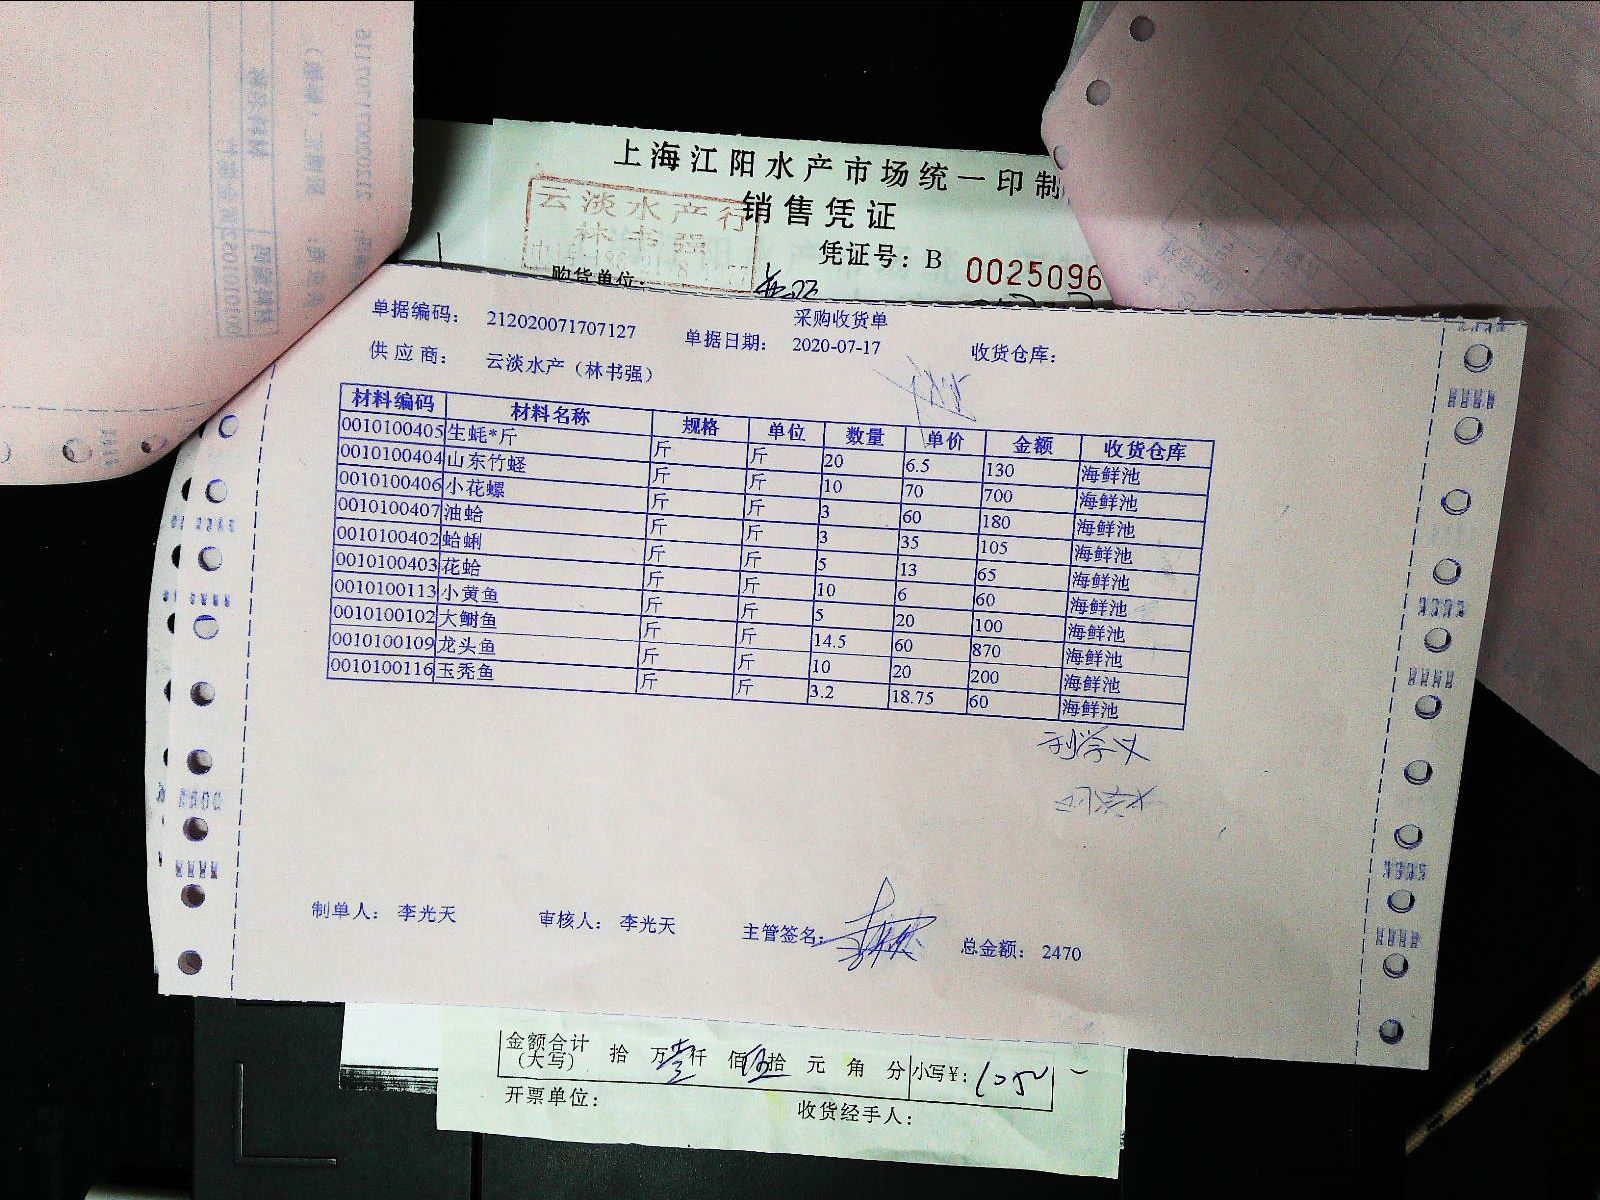 上海江阳水产市场统一印制
销售凭证
云淡水产行
林书强
凭证号：B 0025096
购货单位：
采购收货单
单据编码： 212020071707127 单据日期： 2020-07-17 收货仓库：
供应商： 云淡水产（林书强）
材料编码 材料名称 规格 单位 数量 单价 金额 收货仓库
0010100405 生蚝*斤 斤 斤 20 6.5 130 海鲜池
0010100404 山东竹蛏 斤 斤 10 70 700 海鲜池
0010100406 小花螺 斤 斤 3 60 180 海鲜池
0010100407 油蛤 斤 斤 3 35 105 海鲜池
0010100402 蛤蜊 斤 斤 5 13 65 海鲜池
0010100403 花蛤 斤 斤 10 6 60 海鲜池
0010100113 小黄鱼 斤 斤 5 20 100 海鲜池
0010100102 大鲥鱼 斤 斤 14.5 60 870 海鲜池
0010100109 龙头鱼 斤 斤 10 20 200 海鲜池
0010100116 玉秃鱼 斤 斤 3.2 18.75 60 海鲜池
制单人： 李光天 审核人： 李光天 主管签名： 总金额： 2470
金额合计（大写） 拾 万 壹 仟 佰 伍 拾 元 角 分 小写¥：1050
开票单位： 收货经手人：